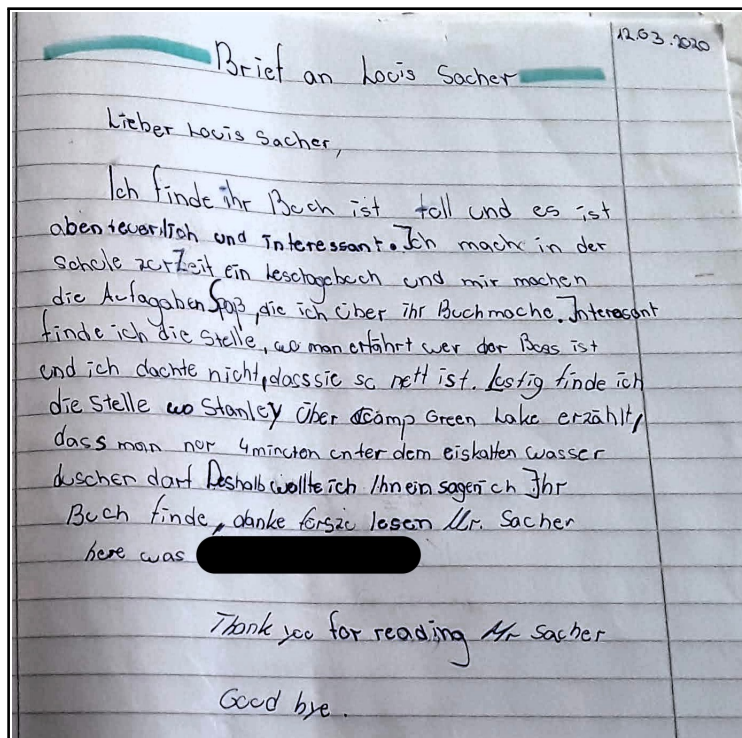 12.03.2020
Brief an Louis Sacher
Lieber Louis Sacher,
Ich finde ihr Buch ist toll und es ist
abenteuerlich und interessant. Ich mach in der
Schule zurZeit ein Lesetagebuch und mir machen
die Aufagaben Spaß, die ich über ihr Buch mache. Interesant
finde ich die Stelle, wo man erfährt wer der Boss ist
und ich dachte nicht, dass sie so nett ist. Lustig finde ich
die Stelle wo Stanley über Camp Green Lake erzählt,
dass man nur 4 minuten unter dem eiskalten wasser
duschen darf Deshalb wollte ich Ihnein sagen ich Ihr
Buch finde, danke fürs zu lesen Mr. Sacher
here was
Thank you for reading Mr Sacher
Good bye.